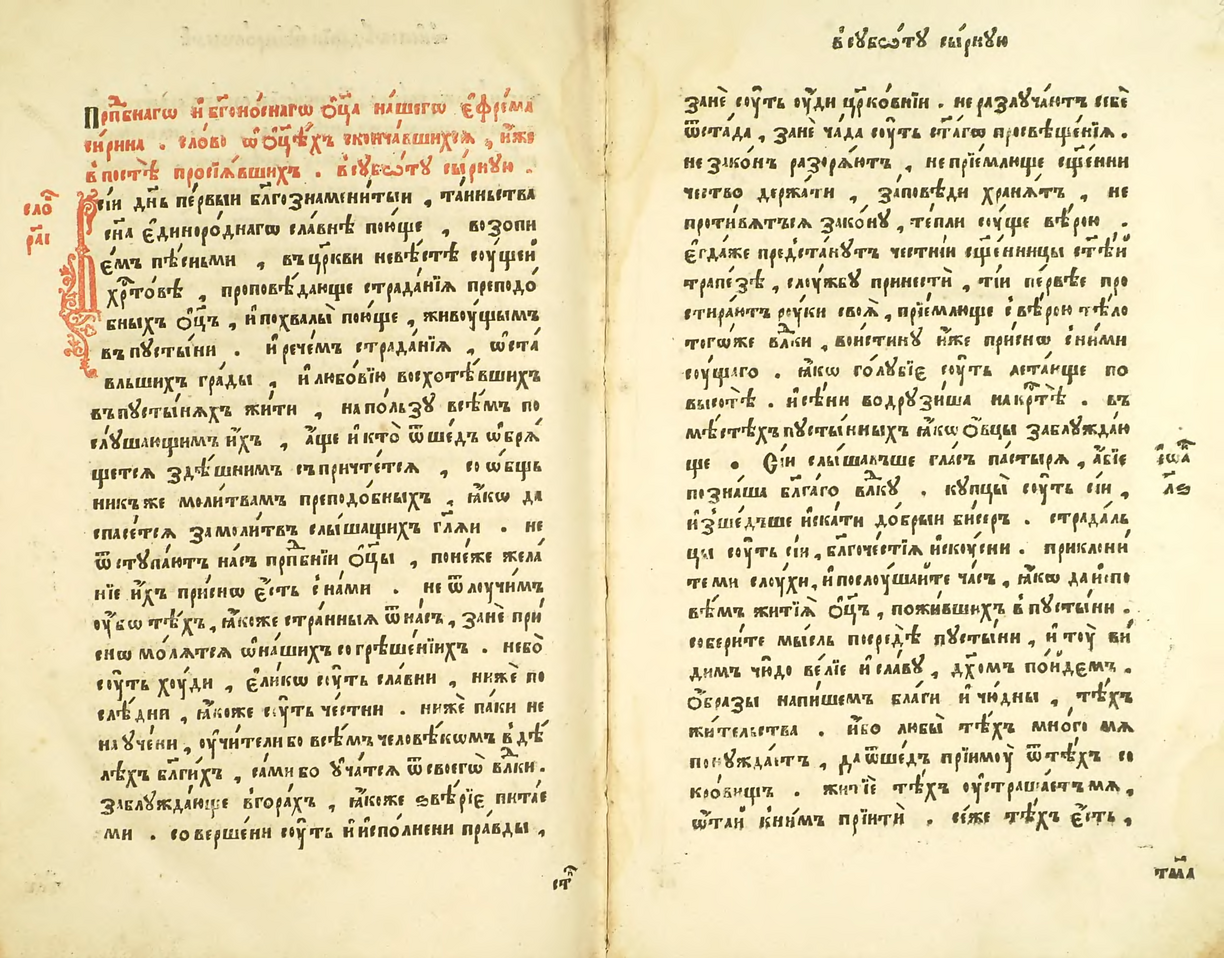 Прпⷣбнагѡ и҆ бг҃оно́снагѡ ѻ҆ц҃а на́шегѡ є҆фре́ма
си́рина . сло́во ѡ҆ ѻ҆ц҃ѣхъ сконча́вшихсѧ , и҆́же
в постѣ̀ просїѧ́вшихъ . в сꙋбѡ́тꙋ сы́рнꙋю .
сло́
ра́і
Сі́и дн҃ь пе́рвыи бл҃гознамени́тыи , та́иньства
сн҃а є҆диноро́днагѡ сла́внѣ пою́ще , возопи
є́мъ пѣ́сньми , въ цр҃кви невѣ́стѣ сꙋ́щеи
хрⷭ҇то́вѣ , проповѣ́дающе страда́нїѧ преподо́
бныхъ ѻ҆ц҃ъ , и҆ похвалы̀ пою́ще , живоу́щымъ
въ пꙋсты́ни . и҆ рече́мъ страда́нїѧ , ѡ҆ста́
вльшихъ гра́ды , и҆ любо́вїю восхотѣ́вшихъ
въ пꙋсты́нѧхъ жи́ти , на по́льзꙋ всѣ́мъ по
слꙋ́шающимъ и҆́хъ , а҆́ще и҆ кто̀ ѿше́дъ ѡ҆брѧ́
щетсѧ здѣ́шнимъ съпричте́тсѧ , со ѡ҆́бщь
никъ же моли́твамъ преподо́бныхъ , ꙗ҆́кѡ да
спасе́тсѧ за моли́твъ слы́шащихъ гл҃ѧи . не
ѿстꙋпа́ютъ на́съ прпⷣбнїи ѻ҆ц҃ы , поне́же жела́
нїе и҆́хъ при́снѡ є҆́сть с на́ми . не ѿлоучи́мъ
оу҆́бѡ тѣ́хъ , ꙗ҆́коже стра́нныѧ ѿ на́съ , занѐ при́
снѡ мо́лѧтсѧ ѡ҆ на́шихъ согрѣше́нїихъ . небо̀
соу́ть хоу́ди , є҆ли́кѡ соу́ть сла́вни , нижѐ по
слѣ́дни , ꙗ҆́коже соу́ть че́стни . нижѐ па́ки не
наꙋче́ни , оу҆чи́тели бо всѣ́мъ человѣ́кѡмъ в дѣ́
лѣхъ бл҃ги́хъ , са́ми бо ꙋ҆ча́тсѧ ѿ своегѡ̀ влⷣки .
заблꙋжда́юще в гора́хъ , ꙗ҆́коже ѕвѣ́рїе пита́е
ми . соверше́ни соу́ть и҆ и҆спо́лнени пра́вды ,
ст҃
в сꙋбѡ́тꙋ сы́рнꙋю
занѐ соу́ть оу҆́ди цр҃ко́внїи . не разлꙋча́ютъ себѐ
ѿ ста́да , занѐ ча́да соу́ть ст҃а́гѡ просвѣще́нїѧ .
не зако́нъ разорѧ́ютъ , не прїе́млюще сщ҃е́нни
чество держа́ти , за́повѣди хранѧ́тъ , не
проти́вѧтъсѧ зако́нꙋ , те́пли соу́ще вѣ́рою .
є҆гда́же предста́нꙋтъ че́стнїи сщ҃е́нницы ст҃ѣ́и
трапе́зѣ , слоу́жбꙋ принестѝ , ті́и пе́рвѣе про
стира́ютъ роу́ки своѧ̀ , прїе́млюще с вѣ́рою тѣ́ло
тогѡ́же влⷣки , вои́стинꙋ и҆́же при́снѡ с ни́ми
соу́щаго . ꙗ҆́кѡ го́лꙋбїе соу́ть лета́юще по
высотѣ̀ . и҆ сѣ́ни водрꙋзи́ша на крⷭ҇тѣ̀ . въ
мѣ́стѣхъ пꙋсты́нныхъ ꙗ҆́кѡ ѻ҆́вцы заблꙋжда́ю
ще . Сі́и слы́шавъше гла́съ па́стырѧ , а҆́бїе
і҆ѡⷩ҇а
л҃ѕ
позна́ша бл҃га́го влⷣкꙋ . кꙋпцы̀ соу́ть сі́и ,
и҆зше́дъше и҆ска́ти до́брыи би́серъ . страда́ль
цы соу́ть сі́и , бл҃гоче́стїѧ и҆скоу́сни . приклони́
те ми слоу́хи , и҆ послоу́шаите ча́съ , ꙗ҆́кѡ да и҆спо
вѣ́мъ житїѧ̀ ѻ҆ц҃ъ , пожи́вшихъ в пꙋсты́ни .
собери́те мы́сль посредѣ̀ пꙋсты́ни , и҆ тоу̀ ви́
димъ чю́до ве́лїе и҆ сла́вꙋ , дх҃омъ по́идемъ .
ѻ҆́бразы напи́шемъ бла́ги и҆ чю́дны , тѣ́хъ
жи́тельства . и҆́бо любы̀ тѣ́хъ мно́го мѧ
понꙋжда́етъ , да ѿше́дъ прїимоу̀ ѿ тѣ́хъ со
кро́вищъ . житїѐ тѣ́хъ оу҆страша́етъ мѧ ,
ѡ҆́таи к ни́мъ прїитѝ . се́же тѣ́хъ є҆́сть ,
тма̀